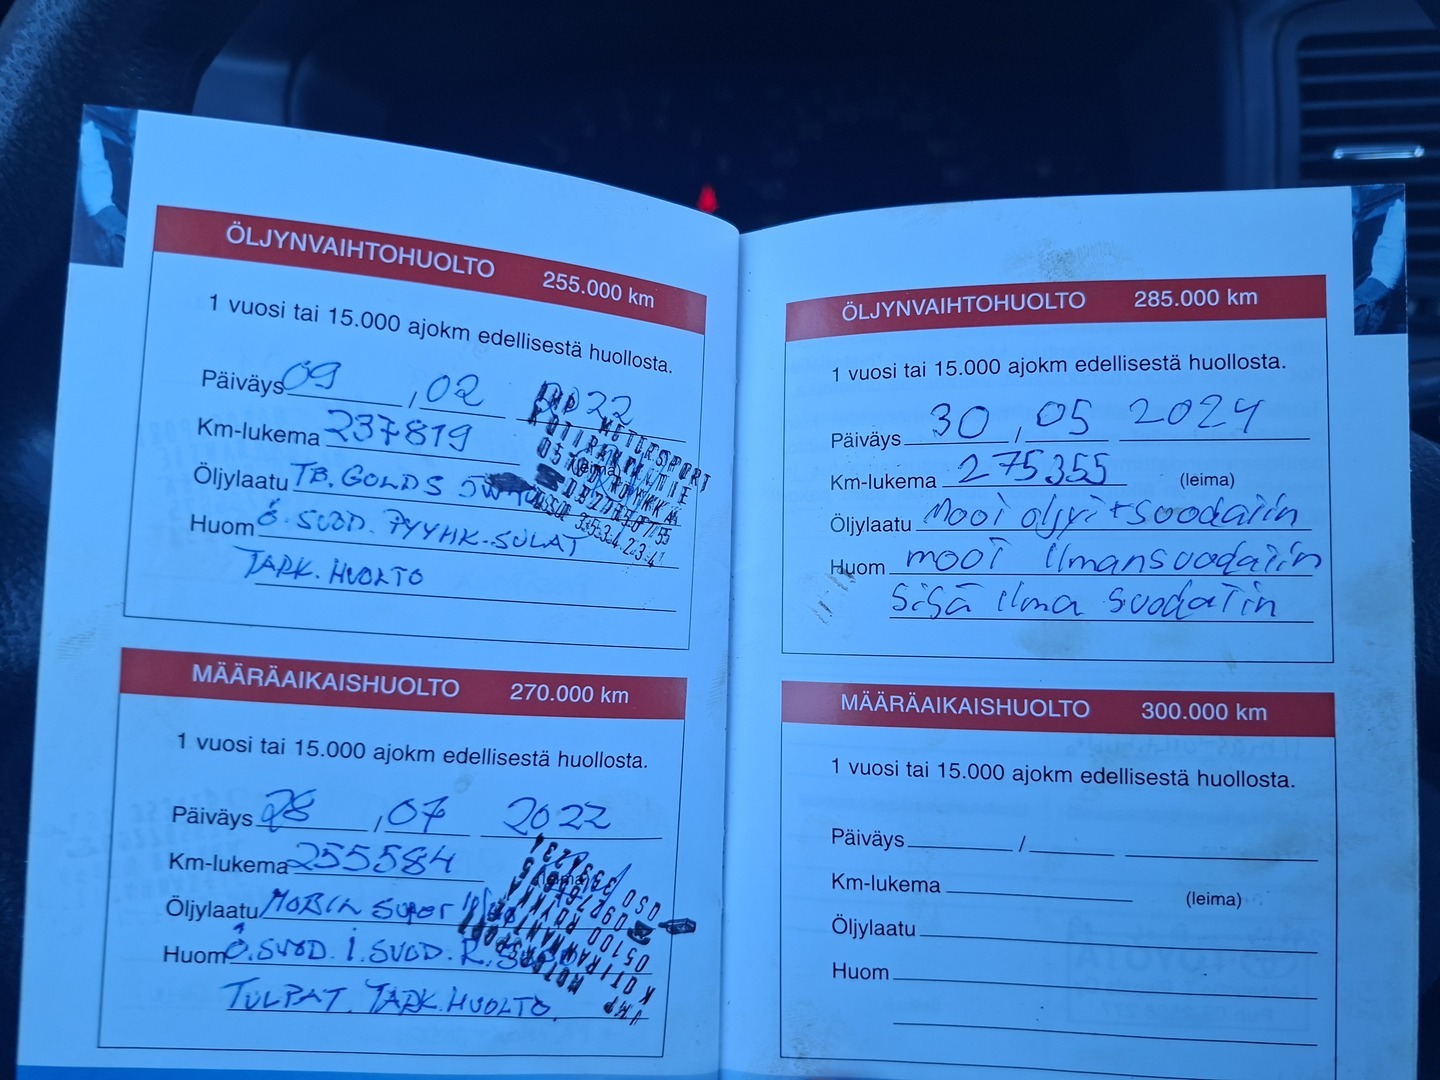 ÖLJYNVAIHTOHUOLTO 255.000 km
1 vuosi tai 15.000 ajokm edellisestä huollosta.
Päiväys 09 , 02 2022
Km-lukema 237819
(leima)
Öljylaatu TB. GOLDS
Huom Ö. SUOD. PYYHK-SULAT
TARK. HUOLTO
MOTORSPORT
MÄÄRÄAIKAISHUOLTO 270.000 km
1 vuosi tai 15.000 ajokm edellisestä huollosta.
Päiväys 28 , 07 2022
Km-lukema 255584
Öljylaatu MOBIL super
Huom Ö.SUOD. I.SUOD. R.
TULPAT. TARK.HUOLTO.
ÖLJYNVAIHTOHUOLTO 285.000 km
1 vuosi tai 15.000 ajokm edellisestä huollosta.
Päiväys 30 / 05 2024
Km-lukema 275355 (leima)
Öljylaatu mooi oljyi+suodatin
Huom mooi ilmansuodatin
sisä ilma suodatin
MÄÄRÄAIKAISHUOLTO 300.000 km
1 vuosi tai 15.000 ajokm edellisestä huollosta.
Päiväys /
Km-lukema (leima)
Öljylaatu
Huom